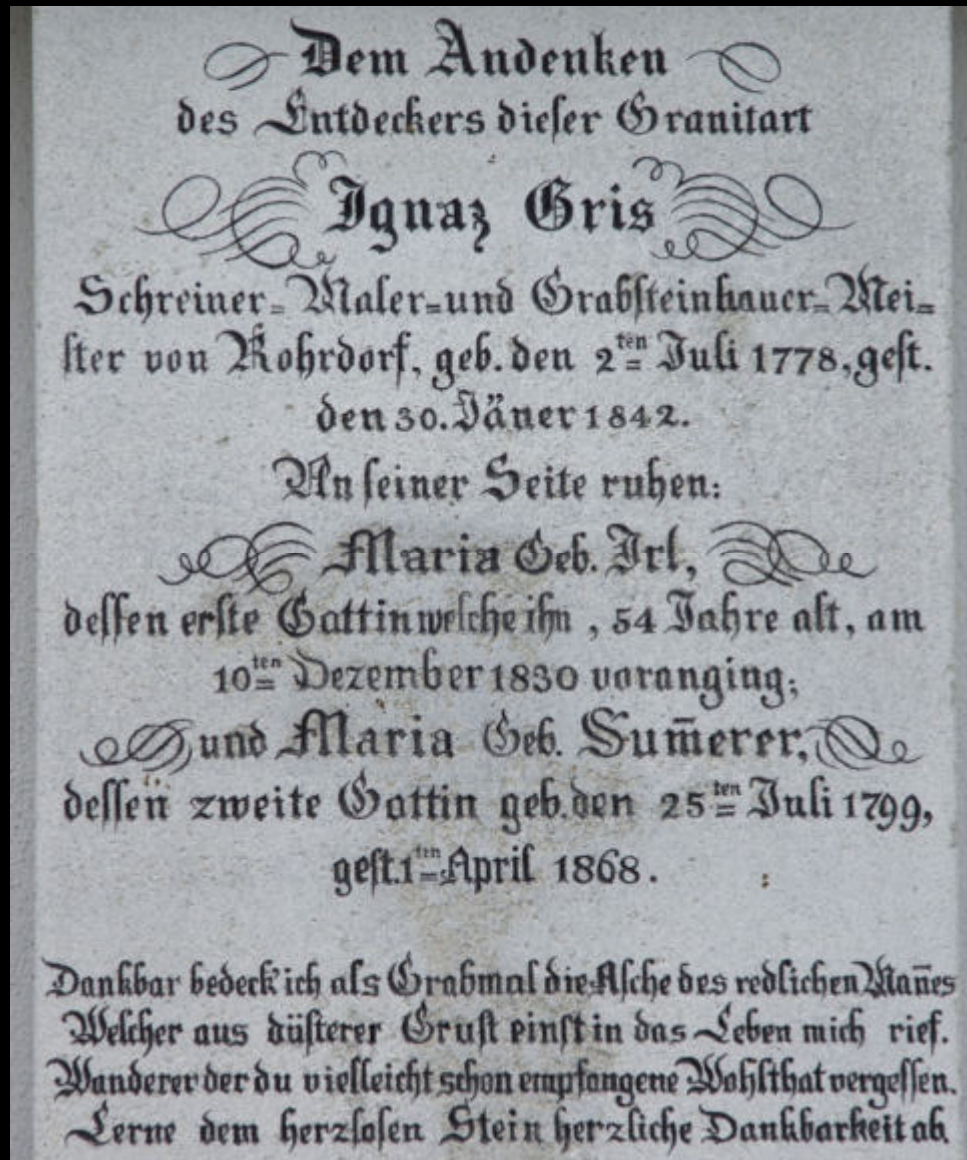 Dem Andenken
des Entdeckers dieser Granitart
Ignaz Gris
Schreiner= Maler=und Grabsteinhauer=Mei=
ster von Rohrdorf, geb. den 2ten Juli 1778, gest.
den 30. Jäner 1842.
An seiner Seite ruhen:
Maria Geb. Irl,
dessen erste Gattin welche ihn, 54 Jahre alt, am
10ten Dezember 1830 voranging;
und Maria Geb. Sum̄erer,
dessen zweite Gattin geb. den 25ten Juli 1799,
gest. 1ten April 1868.
Dankbar bedeck' ich als Grabmal die Asche des redlichen Man̄es
Welcher aus düsterer Gruft einst in das Leben mich rief.
Wanderer der du vielleicht schon empfangene Wohlthat vergessen.
Lerne dem herzlosen Stein herzliche Dankbarkeit ab.